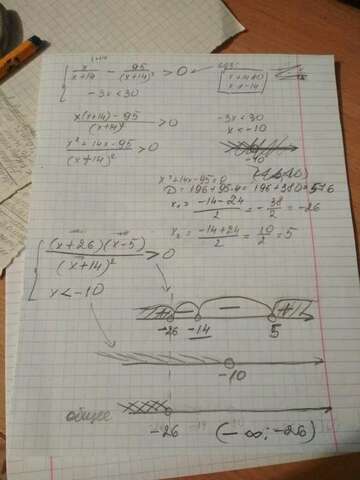 x/(x+14) - 95/(x+14)² > 0
ОДЗ:
x+14≠0
x≠-14
-3x < 30
(x(x+14)-95)/(x+14)² > 0
-3x < 30
x < -10
(x²+14x-95)/(x+14)² > 0
-10
x²+14x-95=0
D = 196+95·4 = 196+380=576
x₁ = (-14-24)/2 = -38/2 = -26
x₂ = (-14+24)/2 = 10/2 = 5
((x+26)(x-5))/(x+14)² > 0
x < -10
+ - - +
-26 -14 5
-10
общее
-26 (-∞; -26)